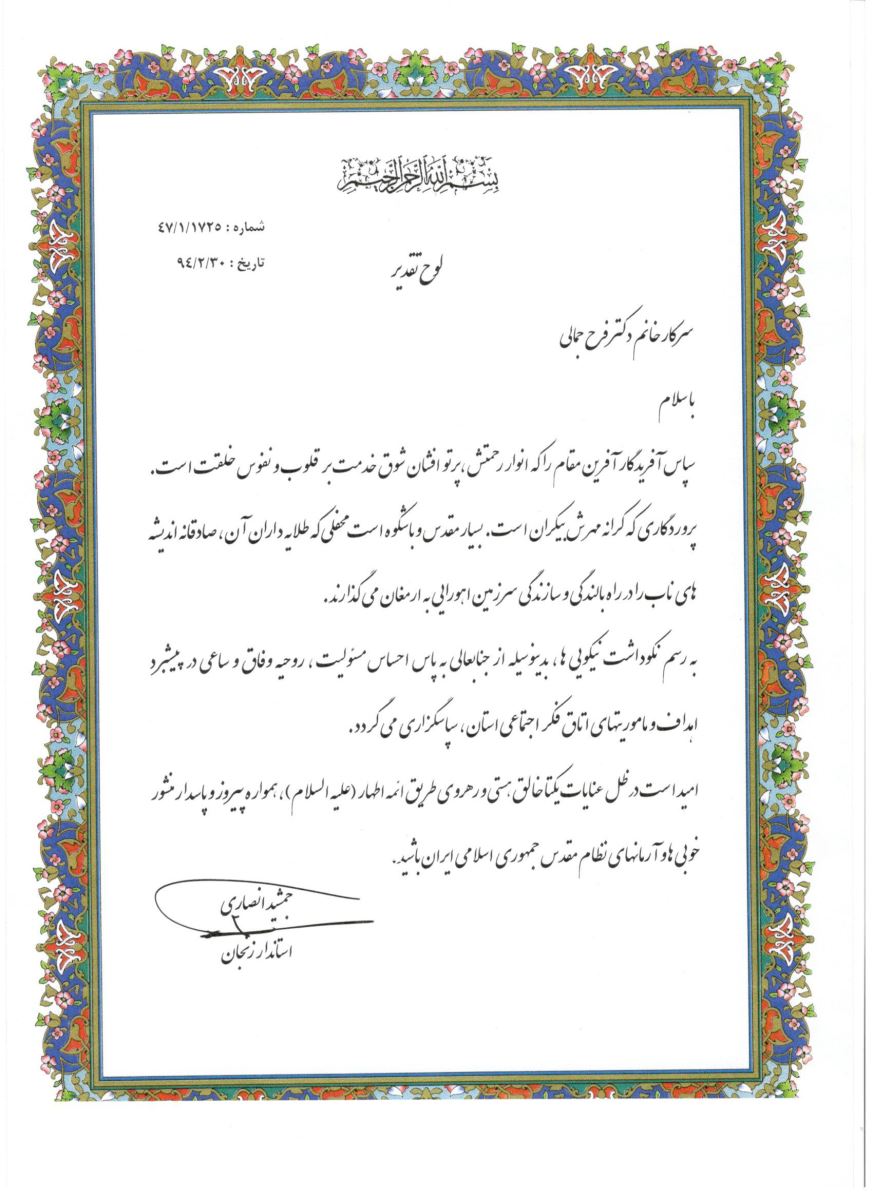 بسم الله الرحمن الرحیم
شماره : ٤٧/١/١٧٢٥
تاریخ : ٩٤/٢/٣٠
لوح تقدیر
سرکار خانم دکتر فرح جمالی
باسلام
سپاس آفریدگار آفرین مقام را که انوار رحمتش، پرتو افشان شوق خدمت بر قلوب و نفوس خلقت است.
پروردگاری که کرانه مهرش بیکران است. بسیار مقدس و باشکوه است محفلی که طلایه داران آن، صادقانه اندیشه
های ناب را در راه بالندگی و سازندگی سرزمین اهورایی به ارمغان می گذارند.
به رسم نکوداشت نیکویی ها، بدینوسیله از جنابعالی به پاس احساس مسئولیت، روحیه وفاق و ساعی در پیشبرد
اهداف و ماموریتهای اتاق فکر اجتماعی استان، سپاسگزاری می گردد.
امید است در ظل عنایات یکتا خالق هستی و رهروی طریق ائمه اطهار (علیه السلام)، همواره پیروز و پاسدار منشور
خوبی ها و آرمانهای نظام مقدس جمهوری اسلامی ایران باشید.
جمشید انصاری
استاندار زنجان